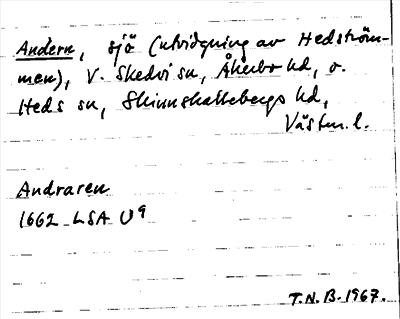 Andern, sjö (utvidgning av Hedström-
men), V. Skedvi sn, Åkerbo hd, o.
Heds sn, Skinnskattebergs hd,
Västm. l.
Andraren
1662 LSA U9
T.N.B. 1967.